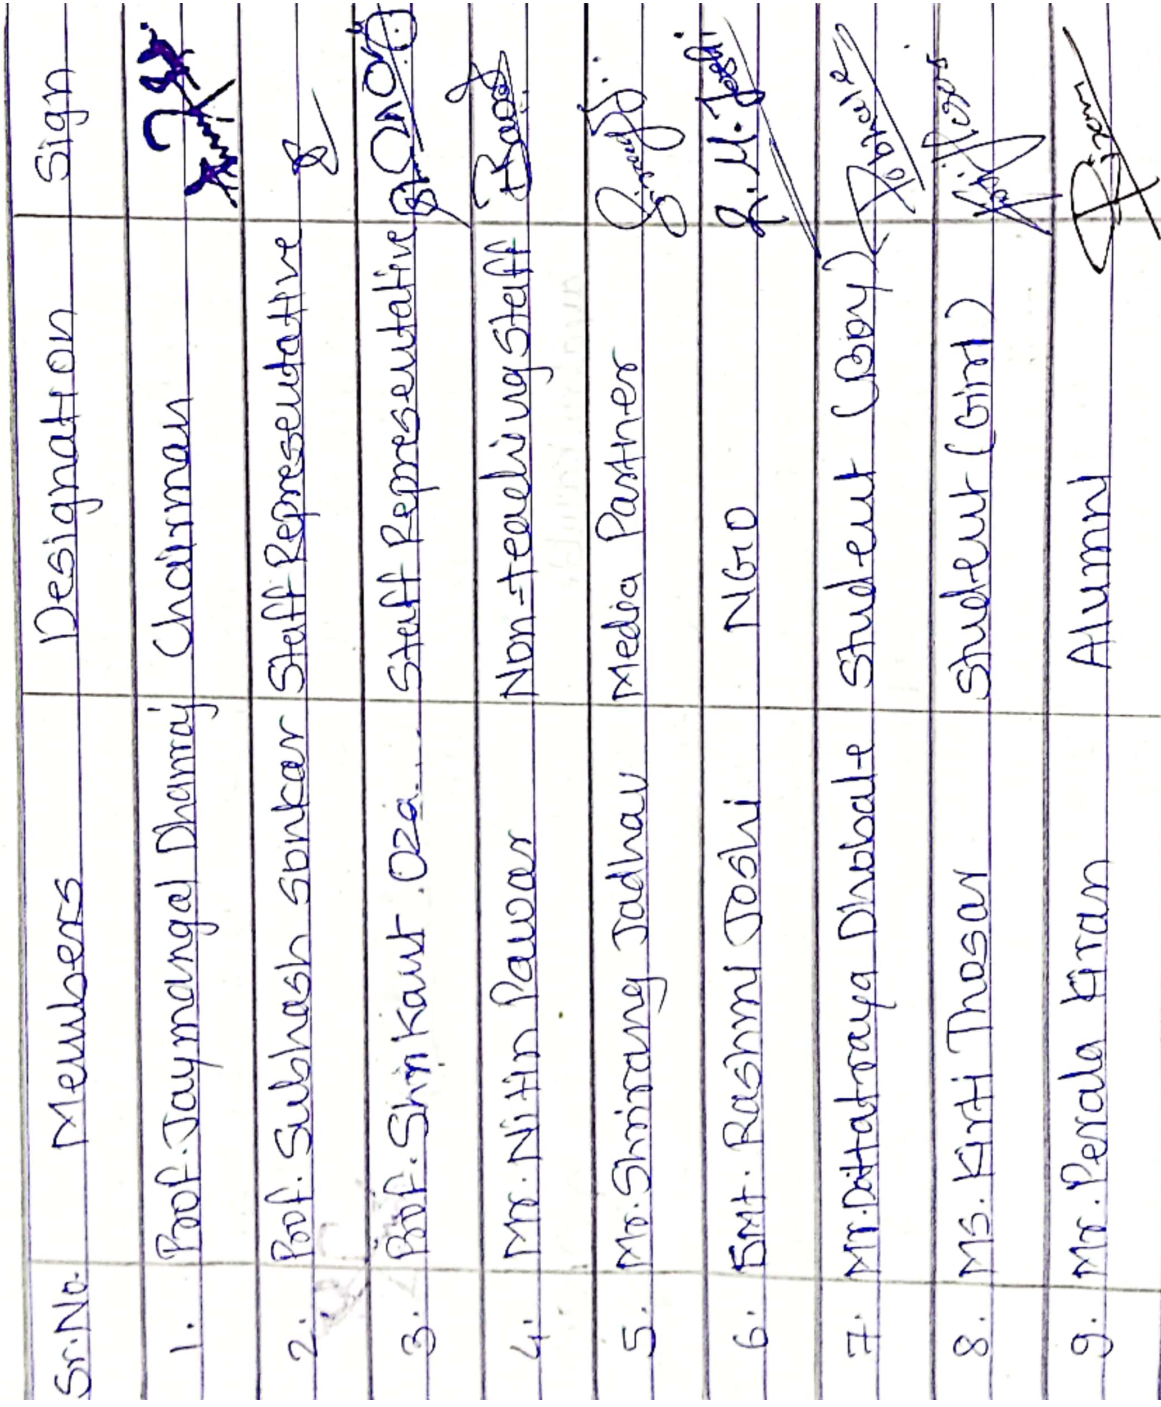 Sr.No. Members Designation Sign
1. Prof. Jaymangal Dhanraj Chairman
2. Prof. Subhash Sonkar Staff Representative
3. Prof. Shri Kant .Oza... Staff Representative
4. Mr. Nitin Pawar Non-teaching Staff
5. Mr. Shrirang Jadhav Media Partner
6. Smt. Rashmi Joshi NGO R.M.Joshi
7. Mr. Dattatraya Dhobale Student (Boy)
8. Ms. Kirti Thosar Student (Girl)
9. Mr. Perala Kiran Alumni